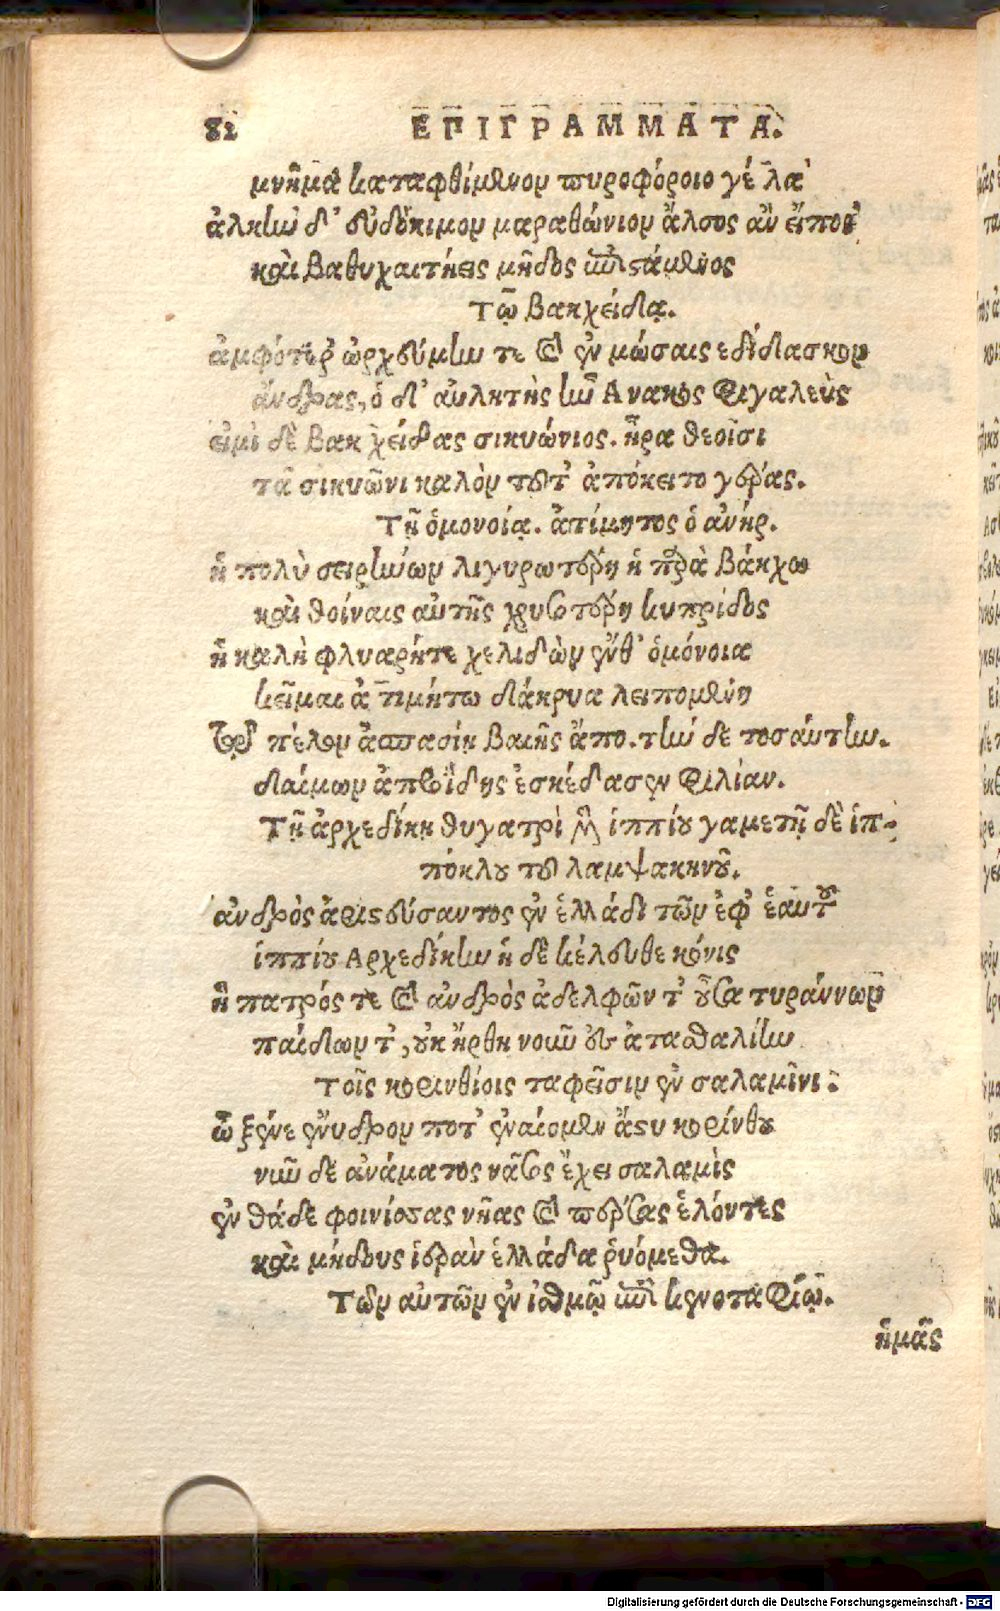 82 ΕΠΙΓΡΑΜΜΑΤΑ.
μνῆμα καταφθίμενον πυροφόροιο γέλα
ἀλκὴν δ' εὐδόκιμον μαραθώνιον ἄλσος ἂν εἴποι
καὶ βαθυχαιτήεις μῆδος ἐπιστάμενος
Τῷ βακχείδᾳ.
ἀμφότερ' ὠρχεύμην τε καὶ ἐν μώσαις ἐδίδασκον
ἄνδρας, ὁ δ' αὐλητὴς ἦν Ἄνακος φιγαλεὺς
εἰμὶ δὲ βακχείδας σικυώνιος. ἦρα θεοῖσι
τᾶ σικυῶνι καλὸν τοῦτ' ἀπόκειτο γέρας.
Τῇ ὁμονοίᾳ. ἀτίμητος ὁ ἀνήρ.
ἡ πολὺ σειρήνων λιγυρωτέρη ἡ παρὰ βάκχω
καὶ θοίναις αὐτῆς χρυσοτέρη κυπρίδος
ἡ καλὴ φλυαρήτε χελιδὼν ἔνθ' ὁμόνοια
κεῖμαι ἀτιμήτω δάκρυα λειπομένη
πέλον ἀσπασίη βαιῆς ἄπο. τὴν δὲ τοσαύτην.
δαίμων ἀπροϊδὴς ἐσκέδασεν φιλίαν.
Τῇ ἀρχεδίκῃ θυγατρὶ μὲν ἱππίου γαμετῇ δὲ ἱπ-
πόκλου τοῦ λαμψακηνοῦ.
ἀνδρὸς ἀριστεύσαντος ἐν ἑλλάδι τῶν ἐφ' ἑαυτοῦ
ἱππίου Αρχεδίκην ἡ δὲ κέκευθε κόνις
ἣ πατρός τε καὶ ἀνδρὸς ἀδελφῶν τ' οὖσα τυράννων
παίδων τ', οὐκ ἤρθη νοῦν ἐς ἀτασθαλίην
Τοῖς κορινθίοις ταφεῖσιν ἐν σαλαμῖνι:
ὦ ξένε ἔνυδρον ποτ' ἐναίομεν ἄστυ κορίνθου
νῦν δὲ ἀνάματος νᾶσος ἔχει σαλαμὶς
ἐνθάδε φοινίσσας νῆας καὶ πέρσας ἑλόντες
καὶ μήδους ἱερὰν ἑλλάδα ῥυόμεθα.
Τῶν αὐτῶν ἐν ἰσθμῷ ἐπὶ κενοταφίῳ.
ἡμᾶς
Digitalisierung gefördert durch die Deutsche Forschungsgemeinschaft - DFG